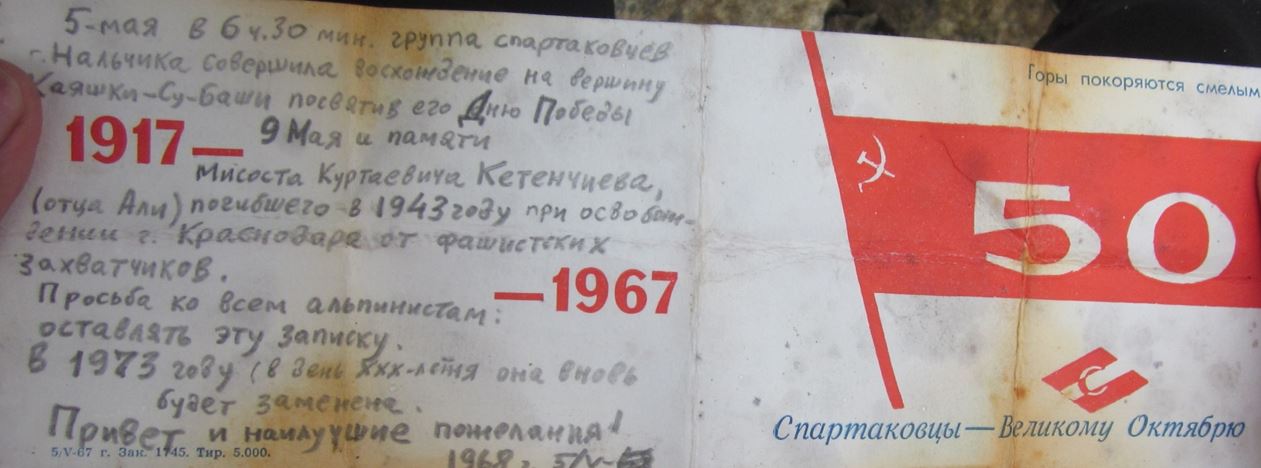 5-мая в 6 ч.30 мин. группа спартаковцев
г. Нальчика совершила восхождение на вершину
Каяшки-Су-Баши посвятив его Дню Победы
1917—
9 Мая и памяти
Мисоста Куртаевича Кетенчиева,
(отца Али) погибшего в 1943 году при освобож-
дении г. Краснодара от фашистских
захватчиков.
—1967
Просьба ко всем альпинистам:
оставлять эту записку.
В 1973 году (в день XXX-летя она вновь
будет заменена.
Привет и наилучшие пожелания!
5/V-67 г. Зак. 1745. Тир. 5.000.
1968 г. 5/V-
Горы покоряются смелым
50
Спартаковцы — Великому Октябрю